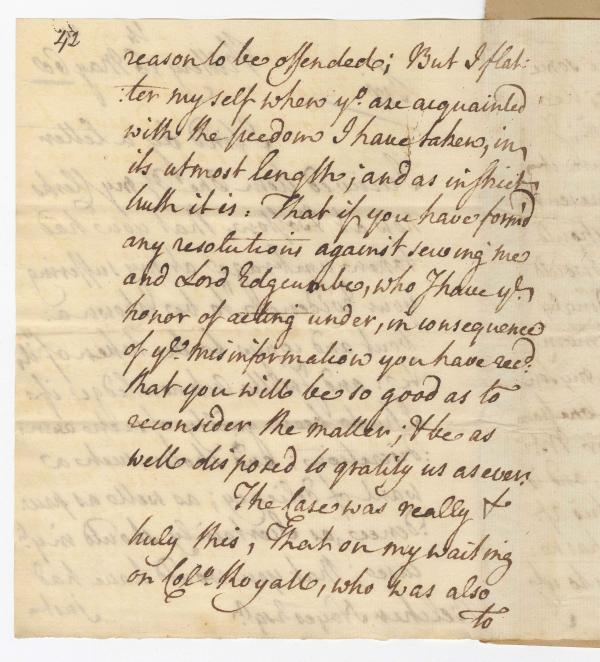 42
reason to be offended; But I flat:
:ter my self when yo. are acquainted
with the freedom I have taken, in
its utmost length; and as in strict
truth it is: That if you have form'd
any resolutions against serving me
and Lord Edgcumbe, who I have ye.
honor of acting under, in consequence
of ye. misinformation you have recd.
that you will be so good as to
reconsider the matter; & be as
well disposed to gratify us as ever.
The Case was really &
truly this, That on my waiting
on Colo. Royall, who was also
to